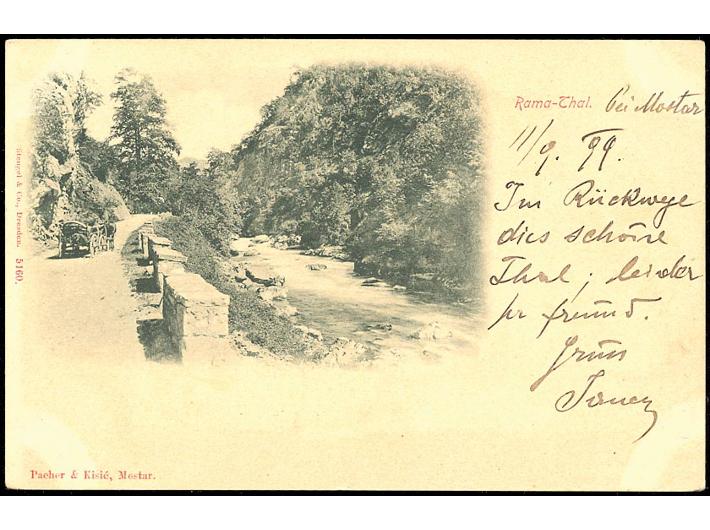 Rama-Thal. bei Mostar
11/9. 99.
Im Rückwege
dies schöne
Thal, leider
pr
Gruss
Stengel & Co., Dresden. 5160.
Pacher & Kisić, Mostar.